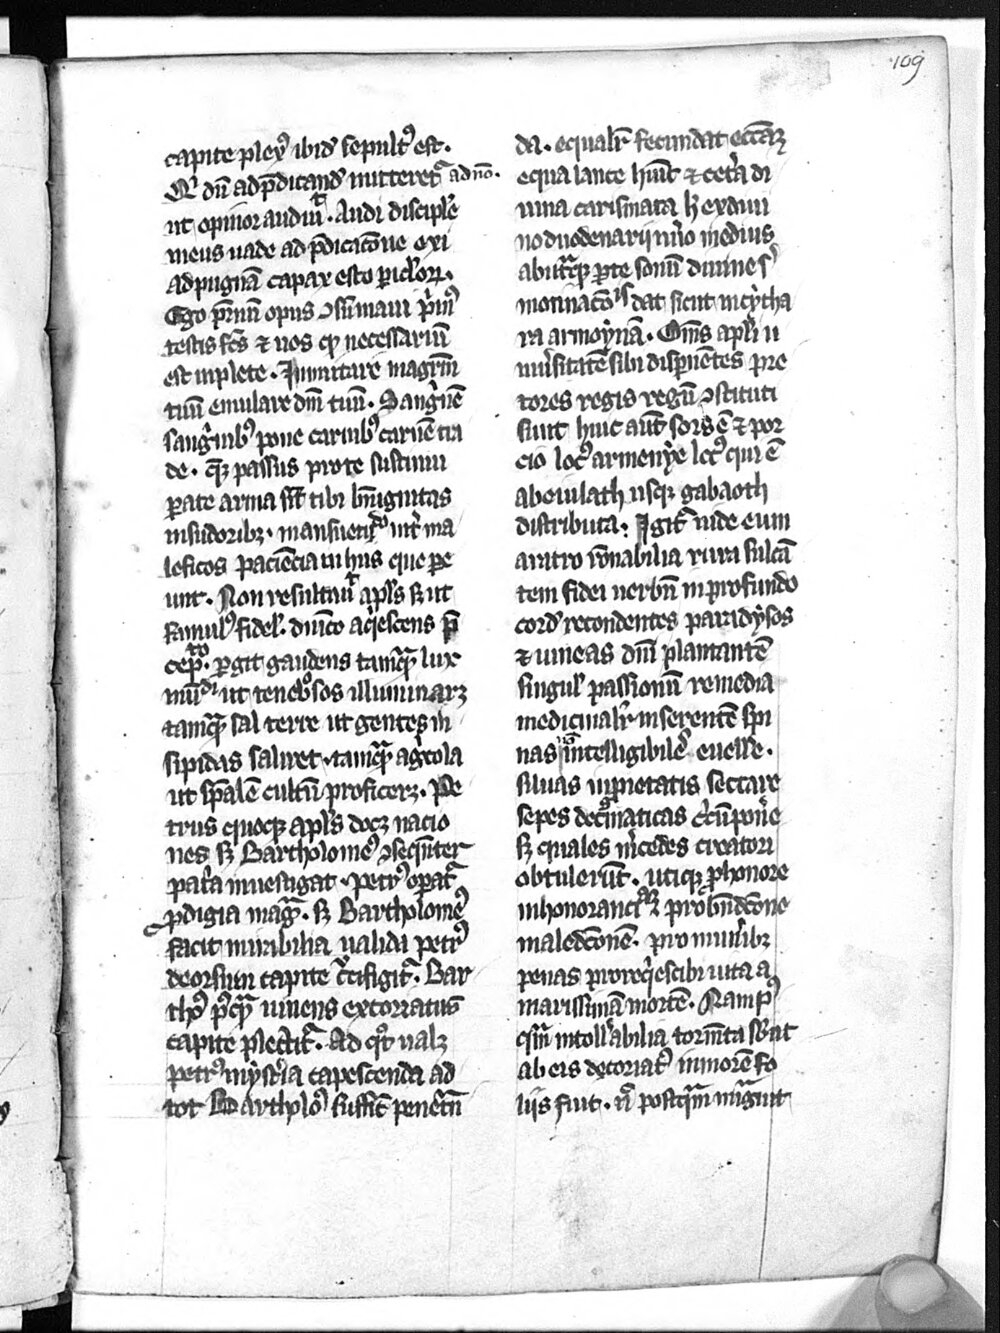 109
capite plexꝰ ibid sepultꝰ est.
Qͥ dn̄ ad p̄dicand mitteretᷓ ad nō.
ut opinor audiuit. Audi disciple
meus uade ad p̄dicatōne exi
ad pugnā capax esto picl'or̄.
Ego p̄mū opus ꝯsūmaui p̄mꝰ
testis fc̄s ⁊ uos qͩ necessariū
est inplete. Inmitare magr̄m
tuū emulare dn̄m tuū. Sanguinē
sanguinibꝰ pone carnibꝰ carnē tra
de. que passus pro te sustinui
ꝑate arma sīt tibi benignitas
in sudoribꝫ. mansuetudo int̄ ma
leficos paciēcia in hiis que pe
unt. Non resultauit apl's sꝫ ut
famulꝰ fidel'. dnico acq̇escens p̄
cepto. ꝑgit gaudens tamqᷓ lux
mūdi ut tenebrosos illuminarꝫ
tamqᷓ sal terre ut gentes in
sipidas saliret. tamqᷓ agͥcola
ut sp̄alē cultū proficerꝫ. Pe
trus quoqꝫ apl's docꝫ nacio
nes sꝫ Bartholomeꝰ ꝯseqn̄ter
pat̄a inuestigat. petrꝰ oꝑatᷓ
ꝓdigia magᷓ. sꝫ Bartholomeꝰ
facit mirabilia ualida petrꝰ
deorsum capite cͬcifigitᷓ. Bar
thoꝰ pꝰqᷓ uiuens excoriatus
capite plectitᷓ. Ad qͦt ualꝫ
petrꝰ myst̄ia capescenda ad
tot Bartholoꝰ sufficit penet̄n
da. equalit̄ fecundat ecc̄iaꝫ
equa lance hn̄t ⁊ cet̄a di
uina carismata
no duodenarij nūo medius
abut̄qꝫ ꝑte sonū diuine
moniacōis dat sicut in cytha
ra armoynā. Om̄s apl'i u
niu̓sitatē sibi dispnētes pre
tores regis regū ꝯstituti
sunt huic aut̄ sors ē ⁊ por
cio locꝰ armenye locꝰ qui ē
ab eiulath usqꝫ gabaoth
distributa. Igitᷓ uide eum
aratro rōnabilia rura sulcā
tem fidei uerbū in profundo
cord' recondentes paradysos
⁊ uineas dn̄i plantantē
singul' passionū remedia
medicinalit̄ inserentē spi
nas intelligibiles euelle.
siluas inpietatis seccare
sepes dogmaticas cͬcūpon̄e
sꝫ quales m̄cedes creatori
obtulerūt. utiqꝫ ꝓ honore
inhonoranciaꝫ pro bn̄dcōne
maledcōnē. pro mun̄ibꝫ
penas pro req̇escibi uita a
marissimā mortē. Nam pꝰ
qᷓm intoll'abilia torm̄ta
ab eis decoriatꝰ in morē fo
liis fuit. n̄ postqᷓm